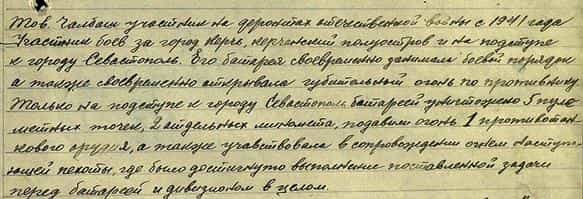 Тов. Чалбаш участник на фронтах отечественной войны с 1941 года
Участник боев за город Керчь, керченский полуостров и на подступе
к городу Севастополь. Его батарея своевременно занимала боевой порядок
а также своевременно открывала губительный огонь по противнику
Только на подступе к городу Севастополь батареей уничтожено 5 пуле
метных точек, 2 отдельных миномета, подавили огонь 1 противотан
кового орудия, а также участвовала в сопровождении огнем наступа-
ющей пехоты, где было достигнуто выполнение поставленной задачи
перед батареей и дивизионом в целом.